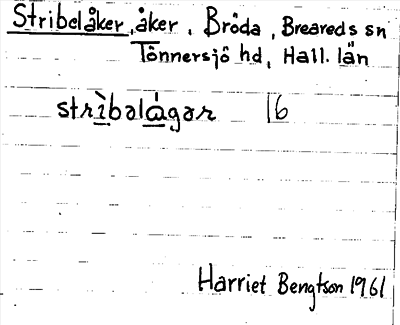 Stribelåker, åker, Bröda, Breareds sn
Tönnersjö hd, Hall. län
strìbəlágər 16
Harriet Bengtson 1961